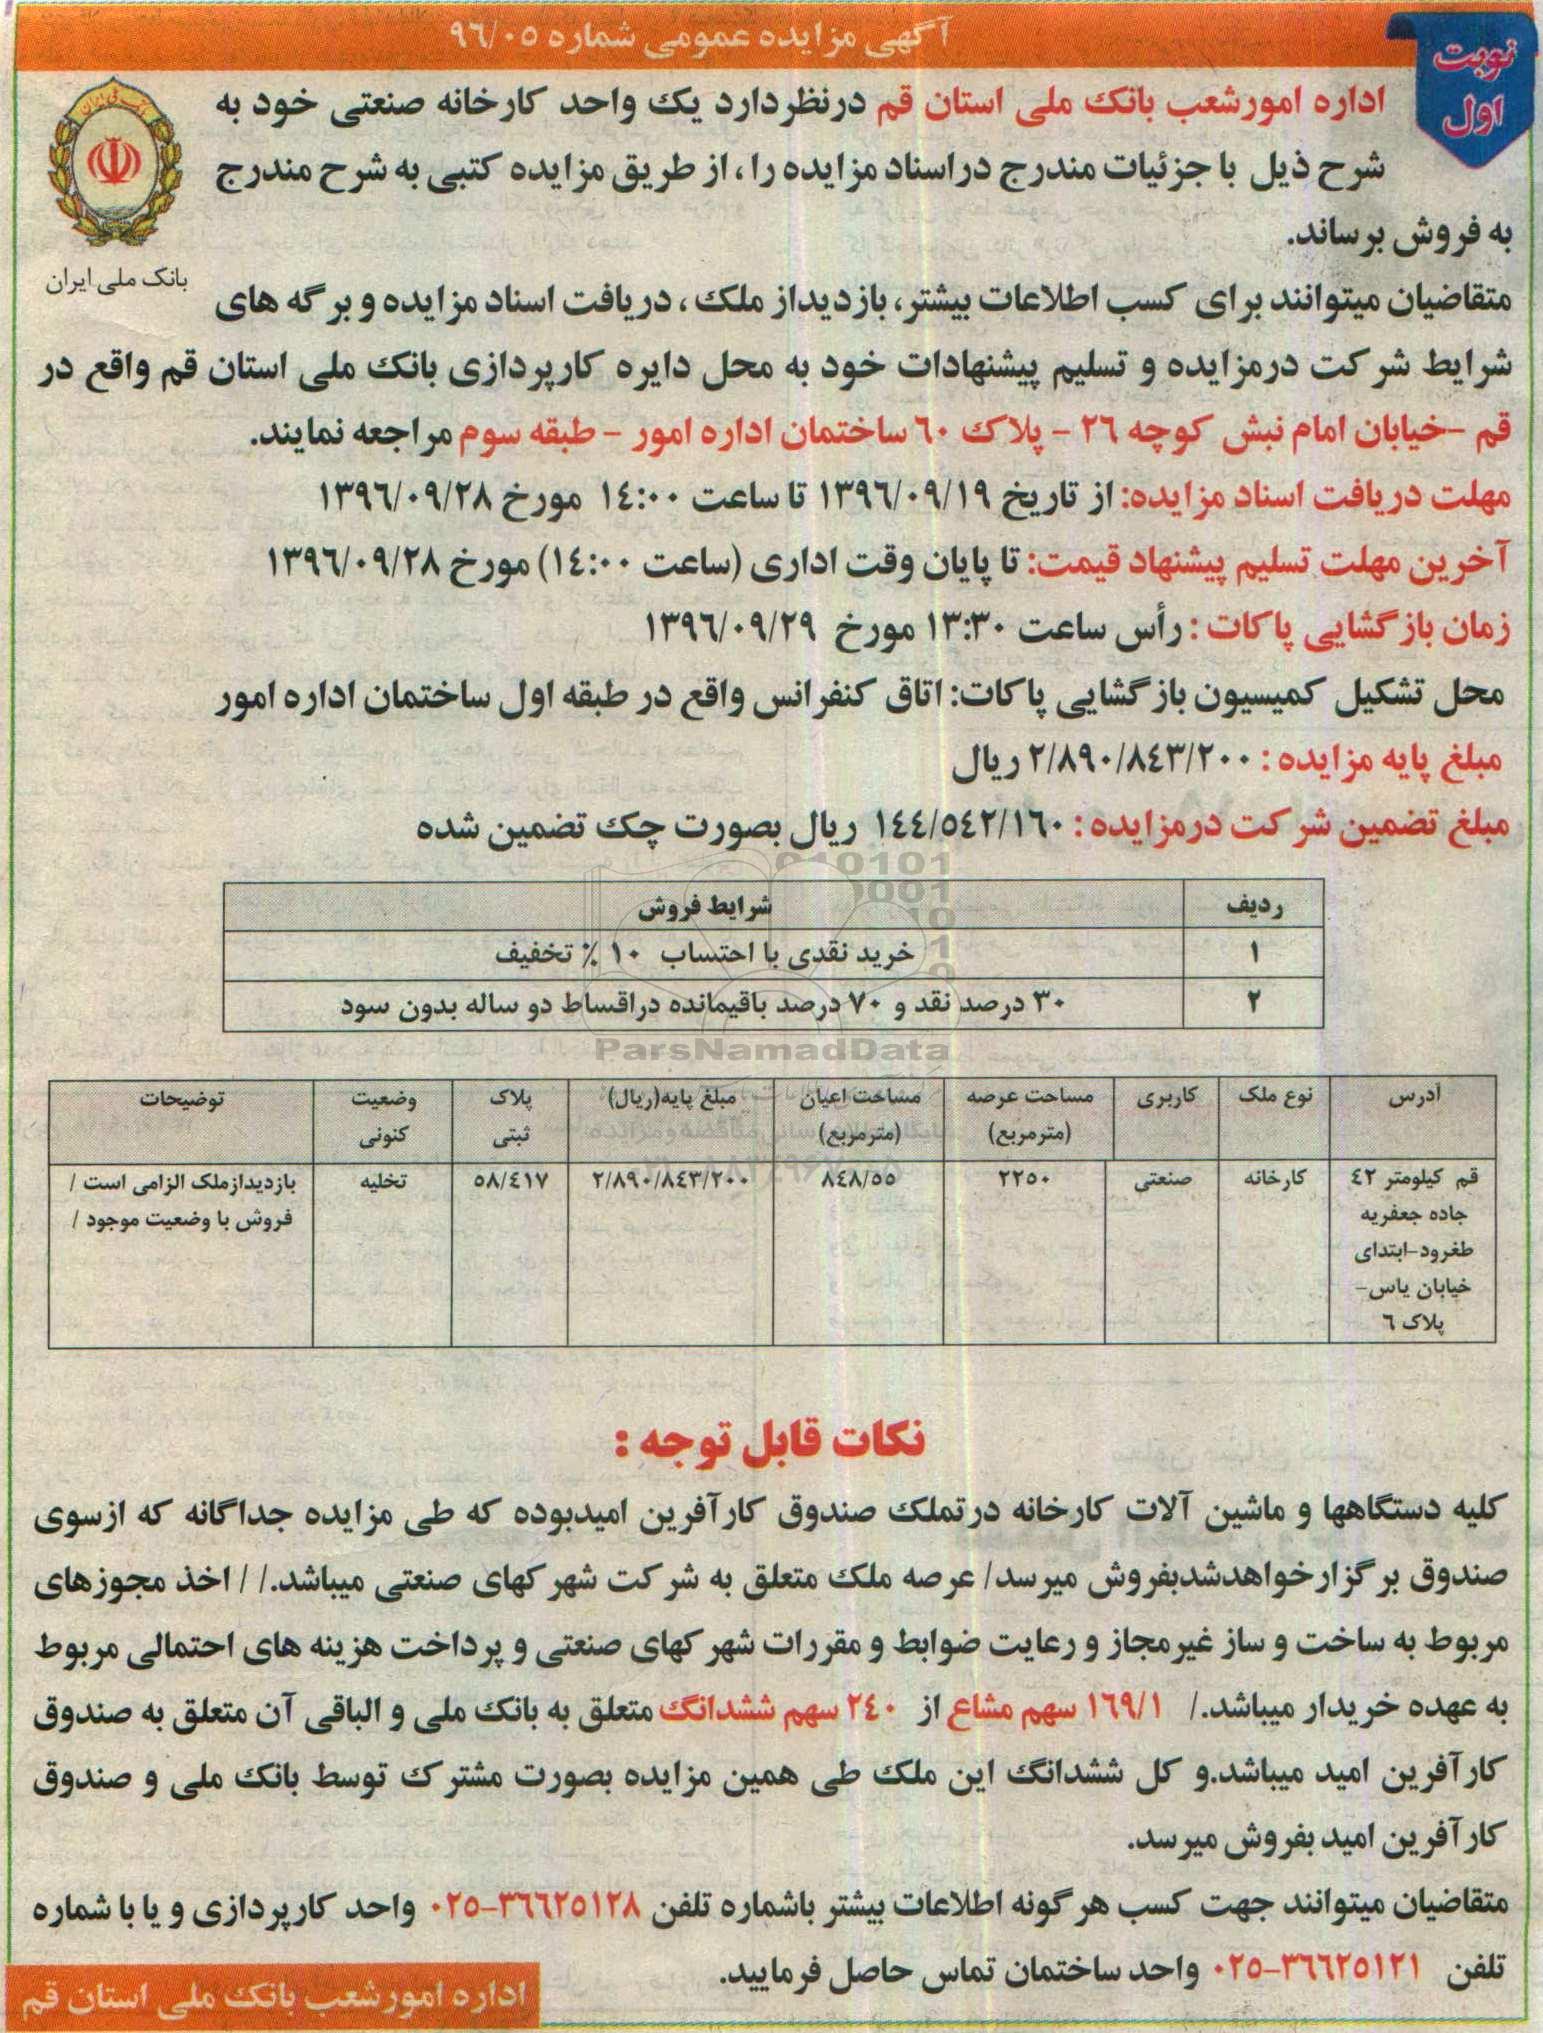 آگهی مزایده عمومی شماره ٩٦/٠٥
نوبت
اول
بانک ملی ایران
اداره امورشعب بانک ملی استان قم درنظردارد یک واحد کارخانه صنعتی خود به
شرح ذیل با جزئیات مندرج دراسناد مزایده را ، از طریق مزایده کتبی به شرح مندرج
به فروش برساند.
متقاضیان میتوانند برای کسب اطلاعات بیشتر، بازدیداز ملک ، دریافت اسناد مزایده و برگه های
شرایط شرکت درمزایده و تسلیم پیشنهادات خود به محل دایره کارپردازی بانک ملی استان قم واقع در
قم –خیابان امام نبش کوچه ٢٦ – پلاک ٦٠ ساختمان اداره امور – طبقه سوم مراجعه نمایند.
مهلت دریافت اسناد مزایده: از تاریخ ١٣٩٦/٠٩/١٩ تا ساعت ١٤:٠٠ مورخ ١٣٩٦/٠٩/٢٨
آخرین مهلت تسلیم پیشنهاد قیمت: تا پایان وقت اداری (ساعت ١٤:٠٠) مورخ ١٣٩٦/٠٩/٢٨
زمان بازگشایی پاکات : رأس ساعت ١٣:٣٠ مورخ ١٣٩٦/٠٩/٢٩
محل تشکیل کمیسیون بازگشایی پاکات: اتاق کنفرانس واقع در طبقه اول ساختمان اداره امور
مبلغ پایه مزایده : ٢/٨٩٠/٨٤٣/٢٠٠ ریال
مبلغ تضمین شرکت درمزایده : ١٤٤/٥٤٢/١٦٠ ریال بصورت چک تضمین شده
ردیف شرایط فروش
١ خرید نقدی با احتساب ١٠ ٪ تخفیف
٢ ٣٠ درصد نقد و ٧٠ درصد باقیمانده دراقساط دو ساله بدون سود
ParsNamadData
آدرس نوع ملک کاربری مساحت عرصه مساحت اعیان مبلغ پایه(ریال) پلاک وضعیت توضیحات
(مترمربع) (مترمربع) ثبتی کنونی
قم کیلومتر ٤٢ کارخانه صنعتی ٢٢٥٠ ٨٤٨/٥٥ ٢/٨٩٠/٨٤٣/٢٠٠ ٥٨/٤١٧ تخلیه بازدیدازملک الزامی است /
جاده جعفریه فروش با وضعیت موجود /
طغرود-ابتدای
خیابان یاس-
پلاک ٦
نکات قابل توجه :
کلیه دستگاهها و ماشین آلات کارخانه درتملک صندوق کارآفرین امیدبوده که طی مزایده جداگانه که ازسوی
صندوق برگزارخواهدشدبفروش میرسد/ عرصه ملک متعلق به شرکت شهرکهای صنعتی میباشد./ / اخذ مجوزهای
مربوط به ساخت و ساز غیرمجاز و رعایت ضوابط و مقررات شهرکهای صنعتی و پرداخت هزینه های احتمالی مربوط
به عهده خریدار میباشد./ ١٦٩/١ سهم مشاع از ٢٤٠ سهم ششدانگ متعلق به بانک ملی و الباقی آن متعلق به صندوق
کارآفرین امید میباشد.و کل ششدانگ این ملک طی همین مزایده بصورت مشترک توسط بانک ملی و صندوق
کارآفرین امید بفروش میرسد.
متقاضیان میتوانند جهت کسب هرگونه اطلاعات بیشتر باشماره تلفن ٣٦٦٢٥١٢٨-٠٢٥ واحد کارپردازی و یا با شماره
تلفن ٣٦٦٢٥١٢١-٠٢٥ واحد ساختمان تماس حاصل فرمایید.
اداره امورشعب بانک ملی استان قم